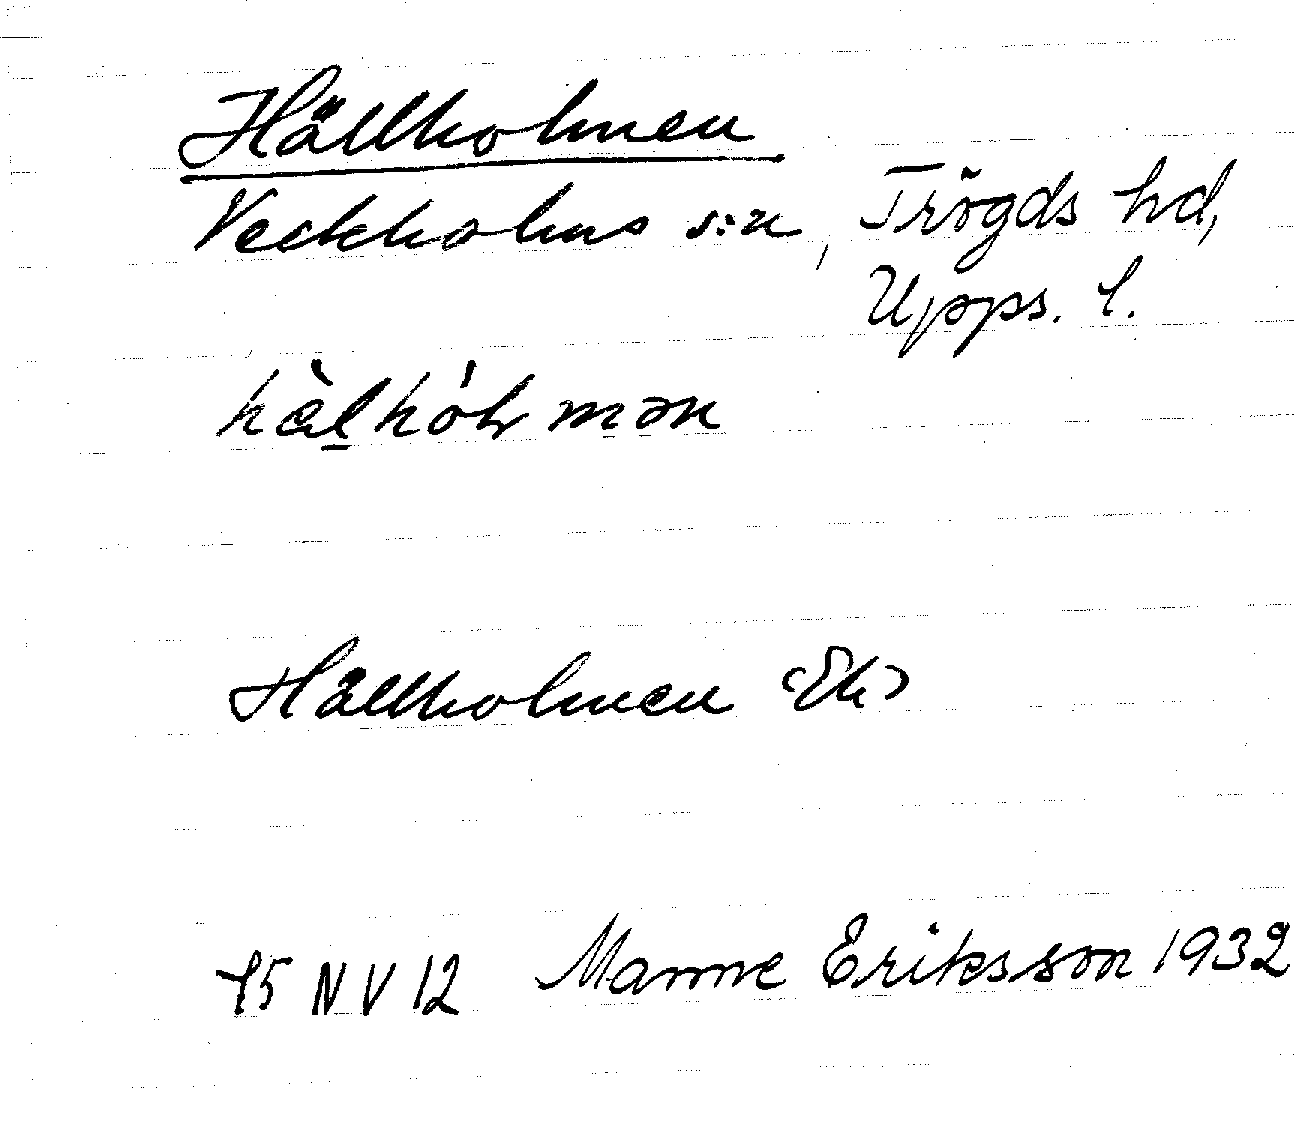 Hällholmen
Veckholms s:n, Trögds hd,
Upps. l.
hàlhólmən
Hällholmen (Ek)
75 NV 12 Manne Eriksson 1932